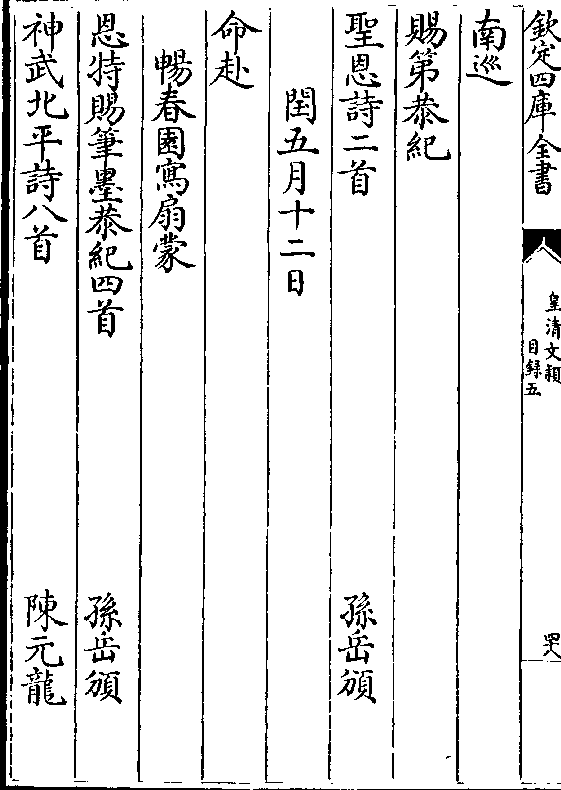 欽定四庫全書
皇清文穎
目録五
四八
南巡
賜第恭紀
聖恩詩二首 孫岳頒
閏五月十二日
命赴
暢春園寫扇蒙
恩特賜筆墨恭紀四首 孫岳頒
神武北平詩八首 陳元龍